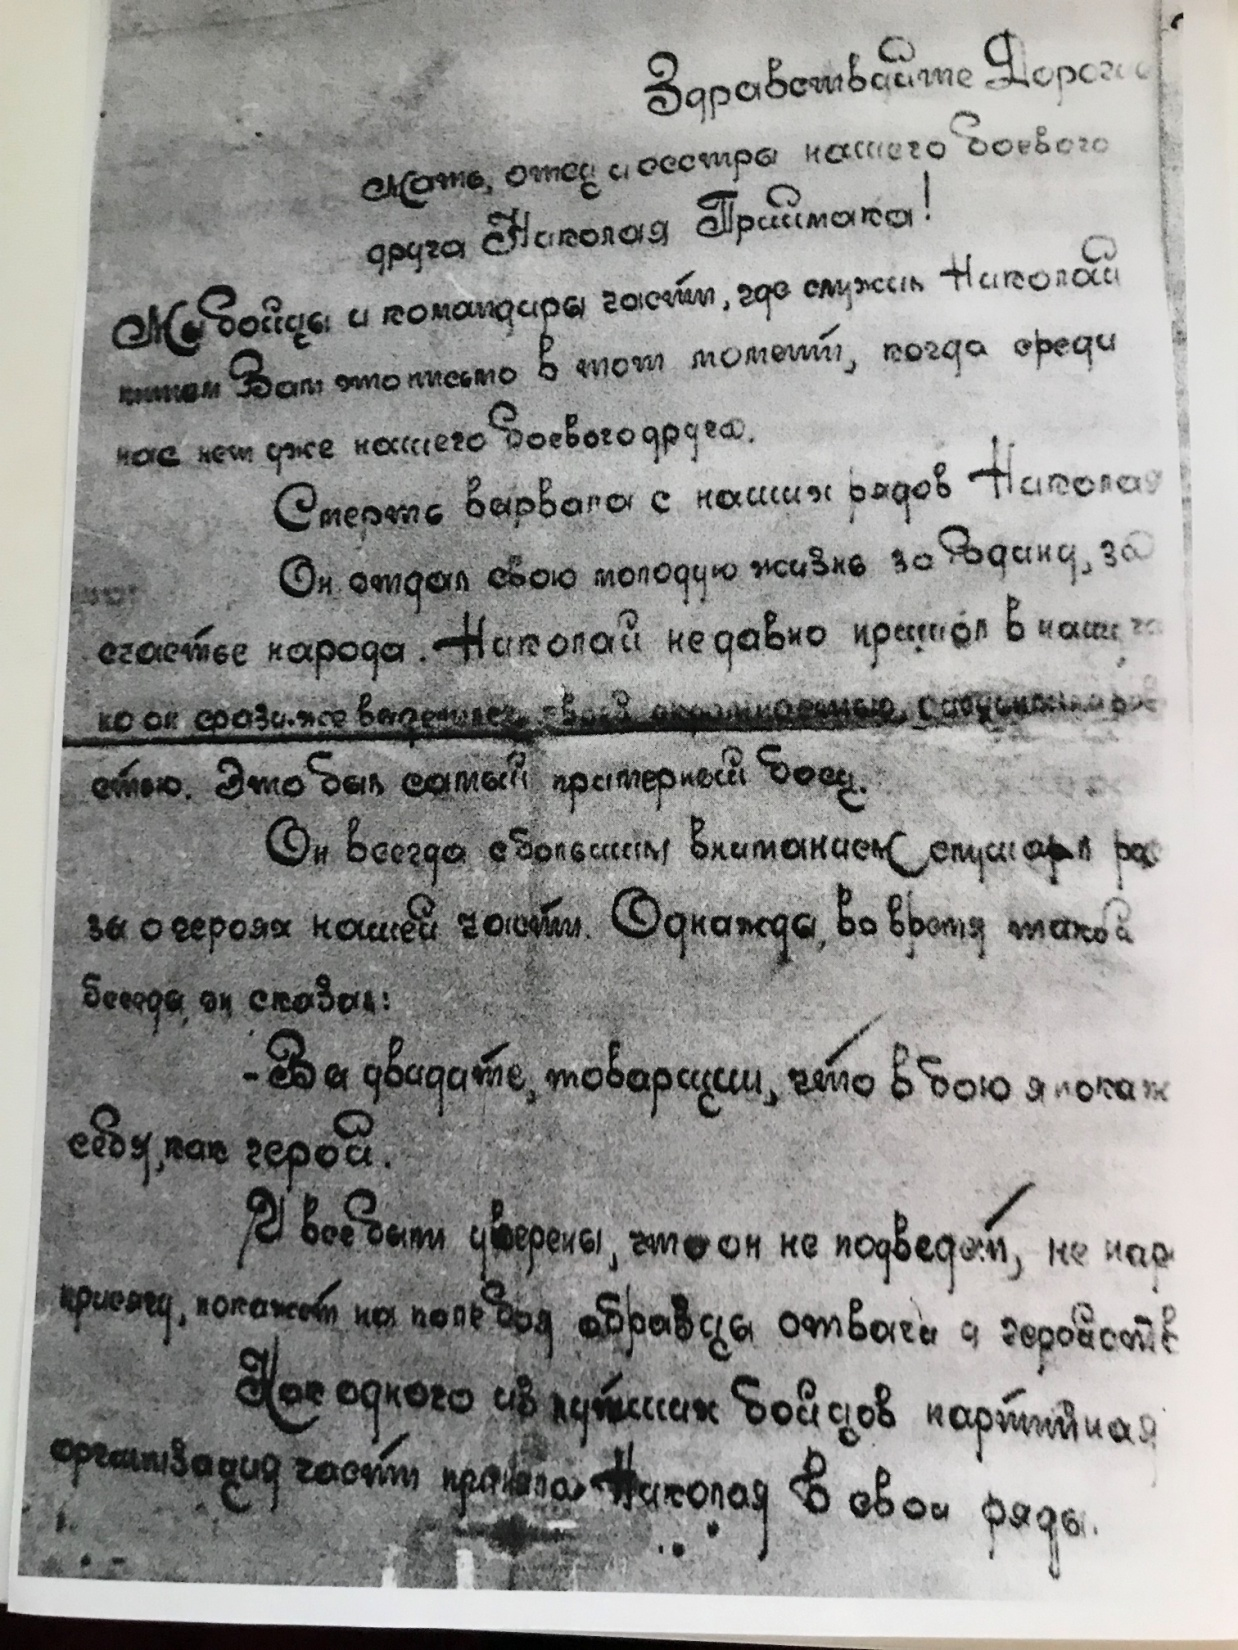 Здравствайте Дорогие
мать, отец и сестры нашего боевого
друга Николая Приймака!
Мы бойцы и командиры части, где служил Николай
пишем Вам это письмо в тот момент, когда среди
нас нет уже нашего боевого друга.
Смерть вырвала с наших рядов Николая
Он отдал свою молодую жизнь за Родину, за
счастье народа. Николай недавно пришол в нашу ча
но он сразу же выделился своей
стью. Это был самый примерный боец.
Он всегда с большим вниманием слушал рас
зы о героях нашей части. Однажды, во время такой
беседы, он сказал:
- Вы увидите, товарищи, что в бою я покаж
себя, как герой.
И все были уверены, что он не подведёт, не нар
присягу, покажет на поле боя образцы отваги и геройств
Как одного из лутших бойцов партийная
организация части приняла Николая в свои ряды.